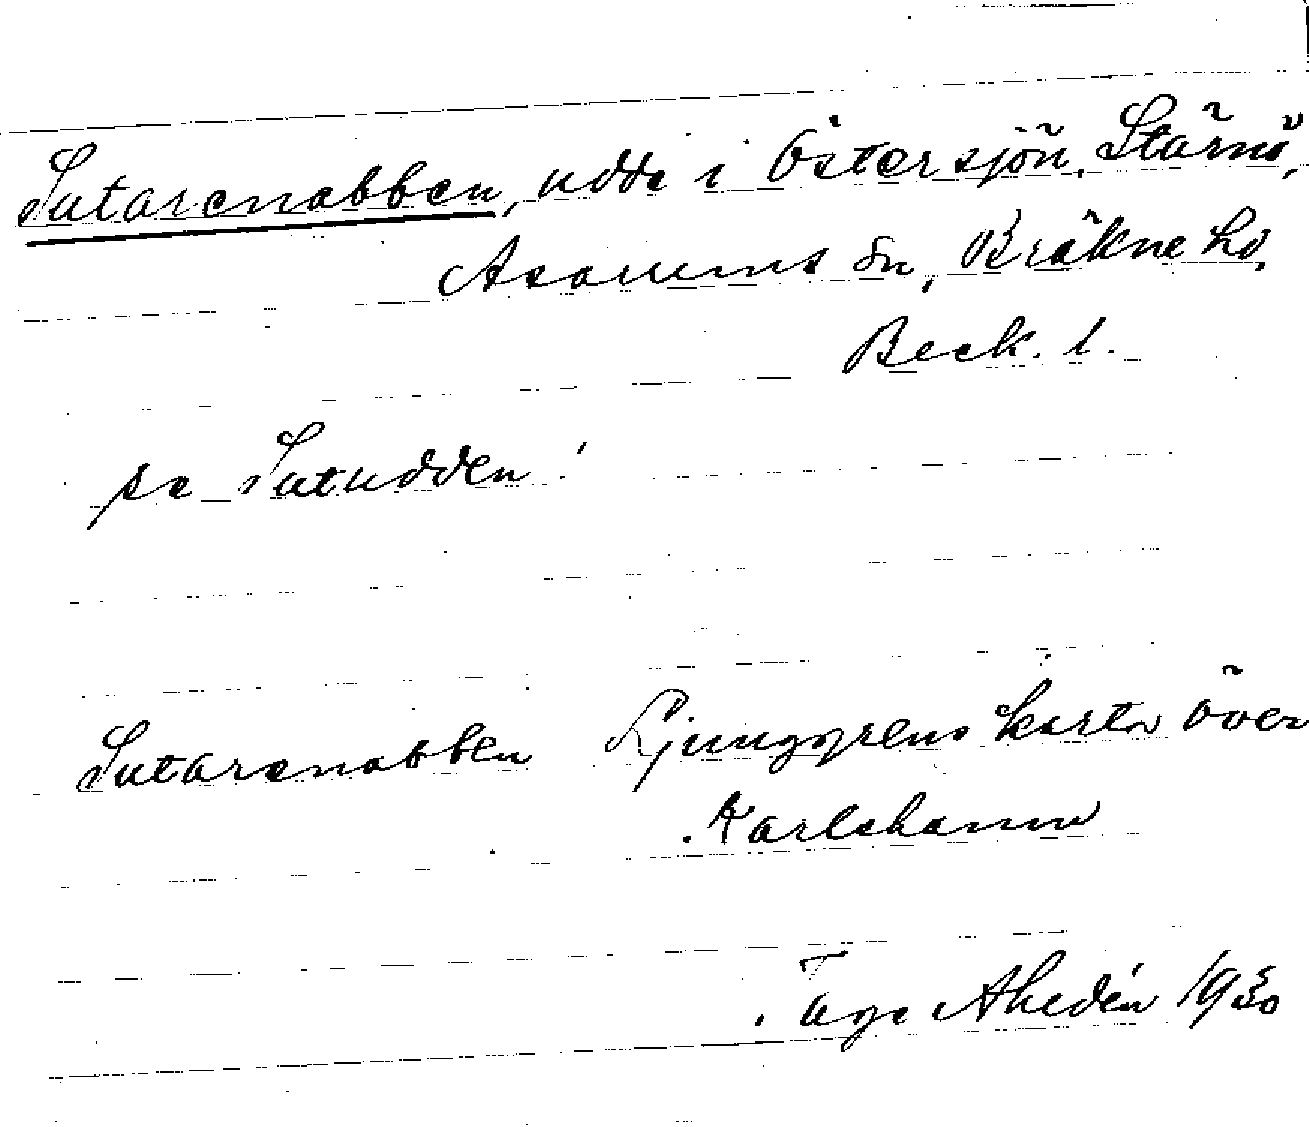 Sutarenabben, udde i Östersjön. Stärnö,
Asarums sn, Bräkne hd.
Beck. l.
se Sutudden!
Sutarenabben Ljunggrens karta över
Karlshamn
Tage Ahedén 1930